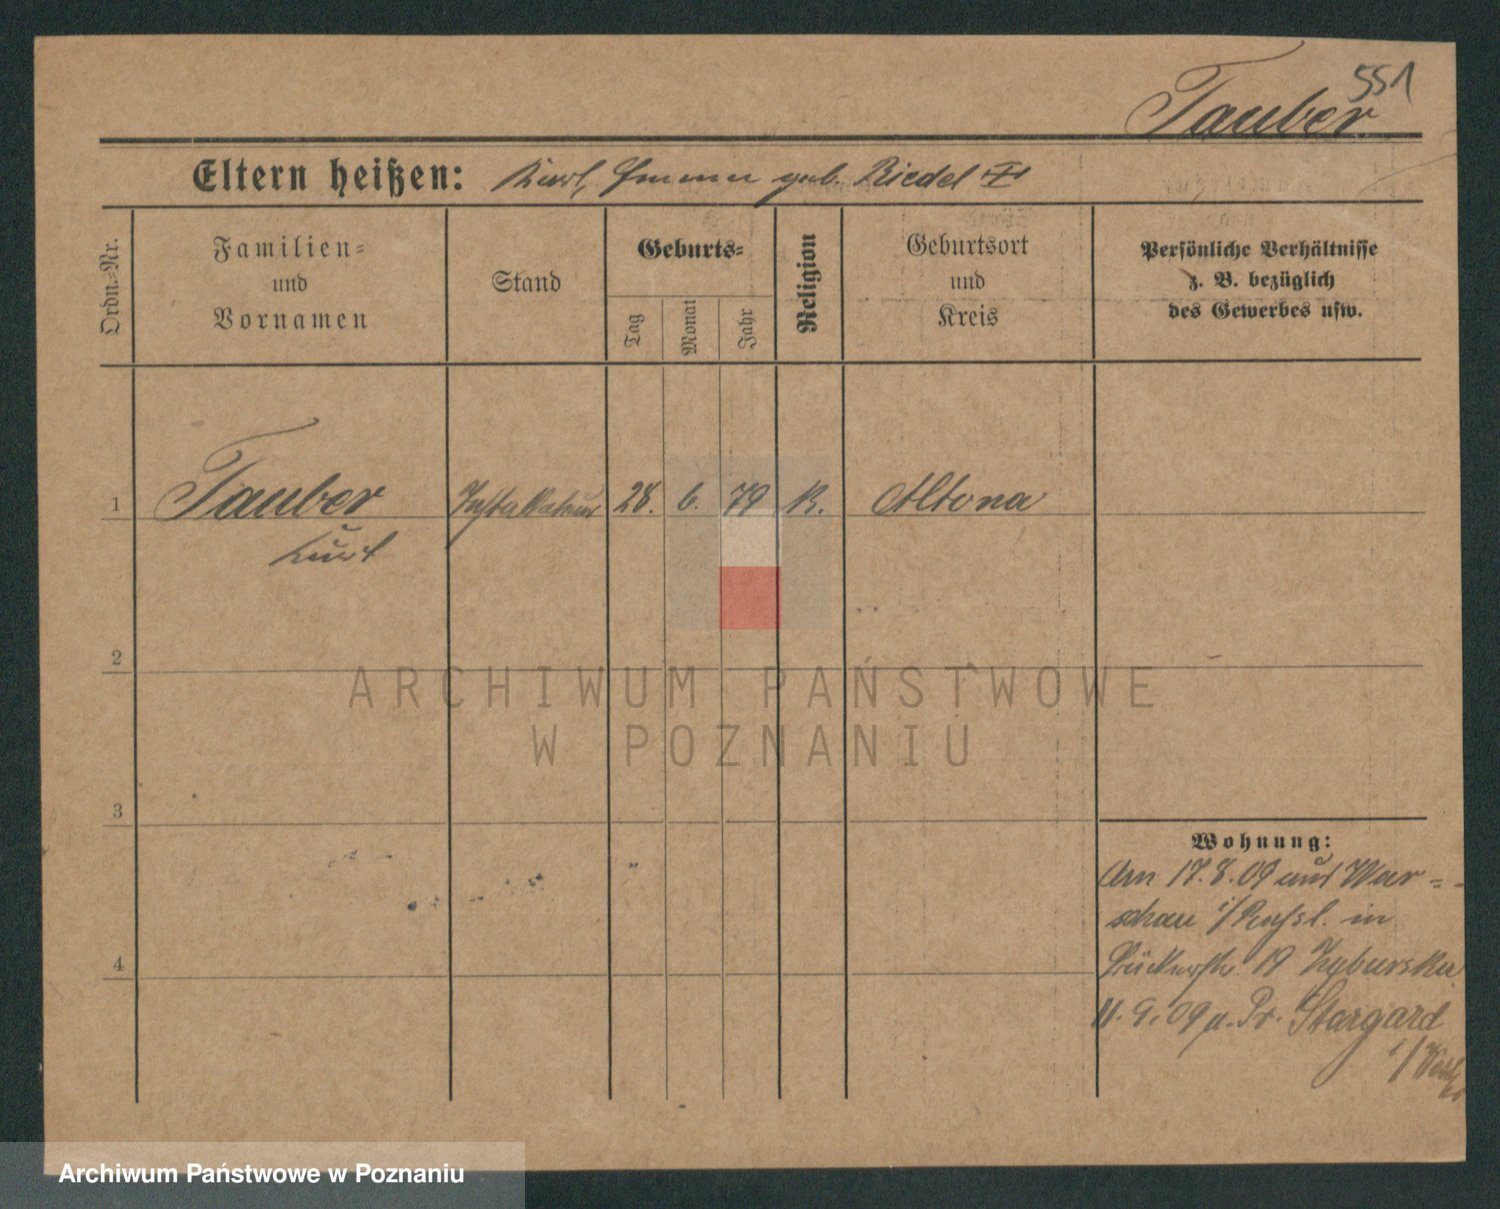 551
Tauber
Eltern heißen: Karl, Emma geb. Riedel
Ordn.-Nr.
Familien-
und
Vornamen
Stand
Geburts-
Tag
Monat
Jahr
Religion
Geburtsort
und
Kreis
Persönliche Verhältnisse
z. B. bezüglich
des Gewerbes usw.
1 Tauber Installateur 28. 6. 79 K. Altona
Kurt
2
3
4
ARCHIWUM PAŃSTWOWE
W POZNANIU
Wohnung:
Am 17.8.09 aus War-
schau i/Rußl. in
19
11.9.09 n. Pr. Stargard
Archiwum Państwowe w Poznaniu